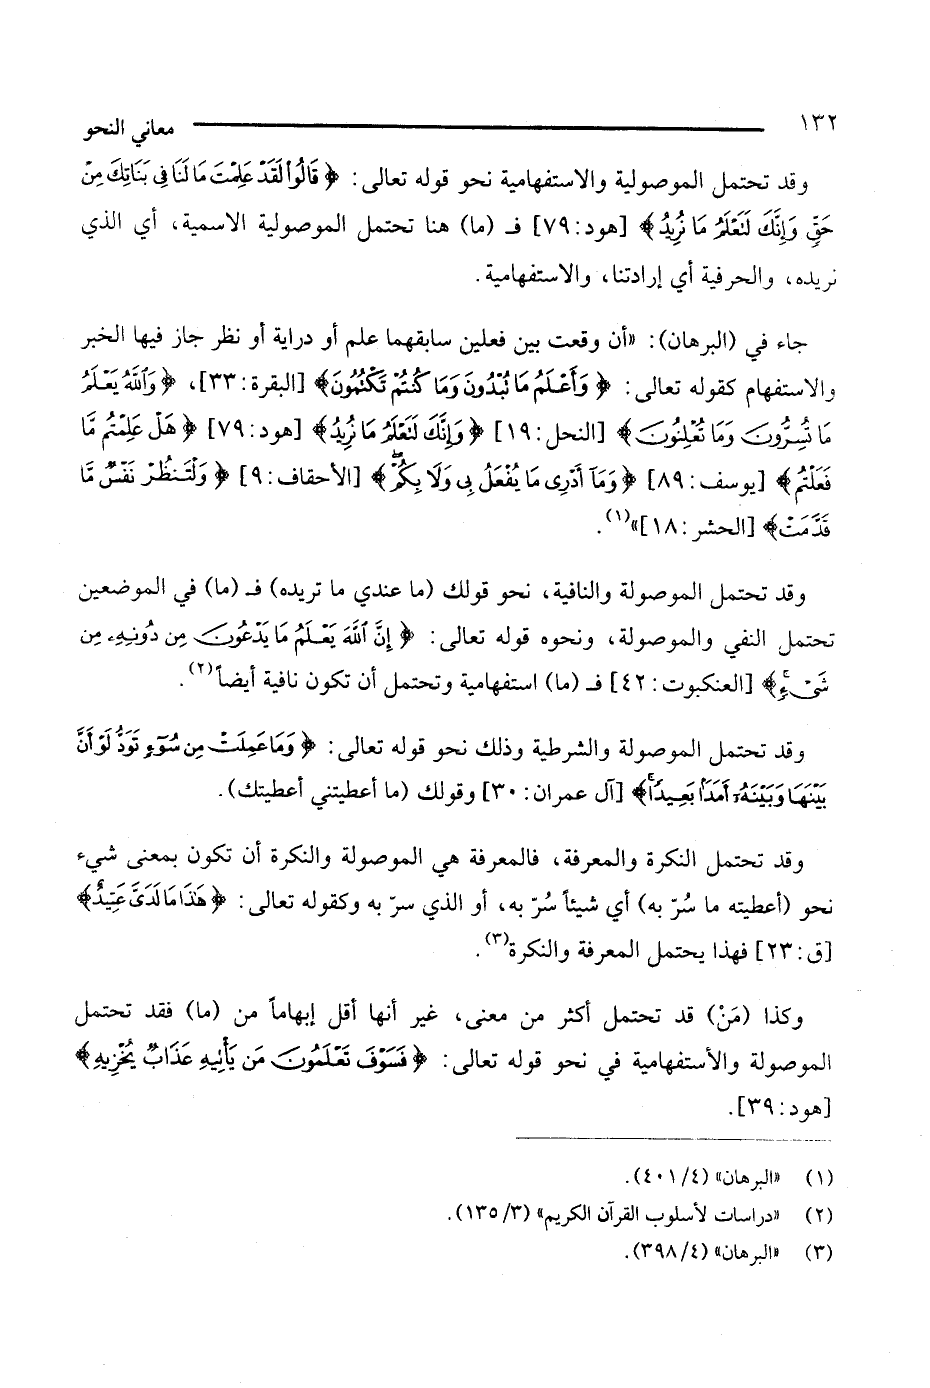 ١٣٢ معاني النحو
وقد تحتمل الموصولية والاستفهامية نحو قوله تعالى: ﴿قَالُوا۟ لَقَدْ عَلِمْتَ مَا لَنَا فِى بَنَاتِكَ مِنْ
حَقٍّ وَإِنَّكَ لَتَعْلَمُ مَا نُرِيدُ﴾ [هود: ٧٩] فـ (ما) هنا تحتمل الموصولية الاسمية، أي الذي
نريده، والحرفية أي إرادتنا، والاستفهامية.
جاء في (البرهان): «أن وقعت بين فعلين سابقهما علم أو دراية أو نظر جاز فيها الخبر
والاستفهام كقوله تعالى: ﴿وَأَعْلَمُ مَا تُبْدُونَ وَمَا كُنتُمْ تَكْتُمُونَ﴾ [البقرة: ٣٣]، ﴿وَٱللَّهُ يَعْلَمُ
مَا تُسِرُّونَ وَمَا تُعْلِنُونَ﴾ [النحل: ١٩] ﴿وَإِنَّكَ لَتَعْلَمُ مَا نُرِيدُ﴾ [هود: ٧٩] ﴿هَلْ عَلِمْتُم مَّا
فَعَلْتُم﴾ [يوسف: ٨٩] ﴿وَمَآ أَدْرِى مَا يُفْعَلُ بِى وَلَا بِكُمْ﴾ [الأحقاف: ٩] ﴿وَلْتَنظُرْ نَفْسٌ مَّا
قَدَّمَتْ﴾ [الحشر: ١٨]»(١).
وقد تحتمل الموصولة والنافية، نحو قولك (ما عندي ما تريده) فـ (ما) في الموضعين
تحتمل النفي والموصولة، ونحوه قوله تعالى: ﴿إِنَّ ٱللَّهَ يَعْلَمُ مَا يَدْعُونَ مِن دُونِهِۦ مِن
شَىْءٍ﴾ [العنكبوت: ٤٢] فـ (ما) استفهامية وتحتمل أن تكون نافية أيضاً(٢).
وقد تحتمل الموصولة والشرطية وذلك نحو قوله تعالى: ﴿وَمَا عَمِلَتْ مِن سُوٓءٍ تَوَدُّ لَوْ أَنَّ
بَيْنَهَا وَبَيْنَهُۥٓ أَمَدًۢا بَعِيدًا﴾ [آل عمران: ٣٠] وقولك (ما أعطيتني أعطيتك).
وقد تحتمل النكرة والمعرفة، فالمعرفة هي الموصولة والنكرة أن تكون بمعنى شيء
نحو (أعطيته ما سُرّ به) أي شيئاً سُرّ به، أو الذي سرّ به وكقوله تعالى: ﴿هَٰذَا مَا لَدَىَّ عَتِيدٌ﴾
[ق: ٢٣] فهذا يحتمل المعرفة والنكرة(٣).
وكذا (مَنْ) قد تحتمل أكثر من معنى، غير أنها أقل إبهاماً من (ما) فقد تحتمل
الموصولة والأستفهامية في نحو قوله تعالى: ﴿فَسَوْفَ تَعْلَمُونَ مَن يَأْتِيهِ عَذَابٌ يُخْزِيهِ﴾
[هود: ٣٩].
(١) «البرهان» (٤/ ٤٠١).
(٢) «دراسات لأسلوب القرآن الكريم» (٣/ ١٣٥).
(٣) «البرهان» (٤/ ٣٩٨).